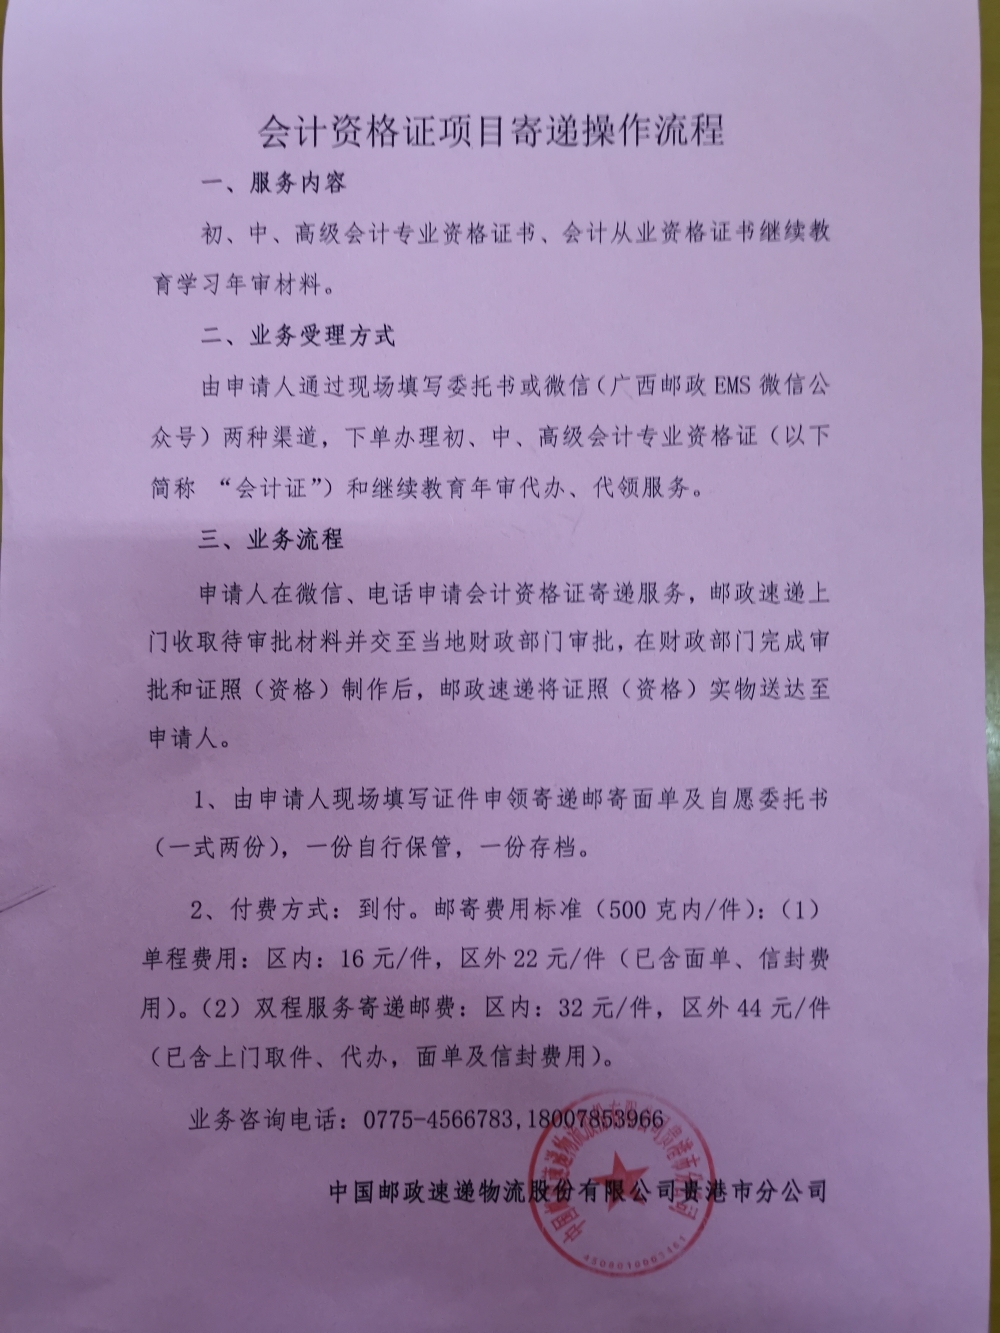 会计资格证项目寄递操作流程
一、服务内容
初、中、高级会计专业资格证书、会计从业资格证书继续教
育学习年审材料。
二、业务受理方式
由申请人通过现场填写委托书或微信（广西邮政 EMS 微信公
众号）两种渠道，下单办理初、中、高级会计专业资格证（以下
简称 “会计证”）和继续教育年审代办、代领服务。
三、业务流程
申请人在微信、电话申请会计资格证寄递服务，邮政速递上
门收取待审批材料并交至当地财政部门审批，在财政部门完成审
批和证照（资格）制作后，邮政速递将证照（资格）实物送达至
申请人。
1、由申请人现场填写证件申领寄递邮寄面单及自愿委托书
（一式两份），一份自行保管，一份存档。
2、付费方式：到付。邮寄费用标准（500 克内/件）：（1）
单程费用：区内：16 元/件，区外 22 元/件（已含面单、信封费
用）。（2）双程服务寄递邮费：区内：32 元/件，区外 44 元/件
（已含上门取件、代办，面单及信封费用）。
业务咨询电话：0775-4566783,18007853966
中国邮政速递物流股份有限公司贵港市分公司